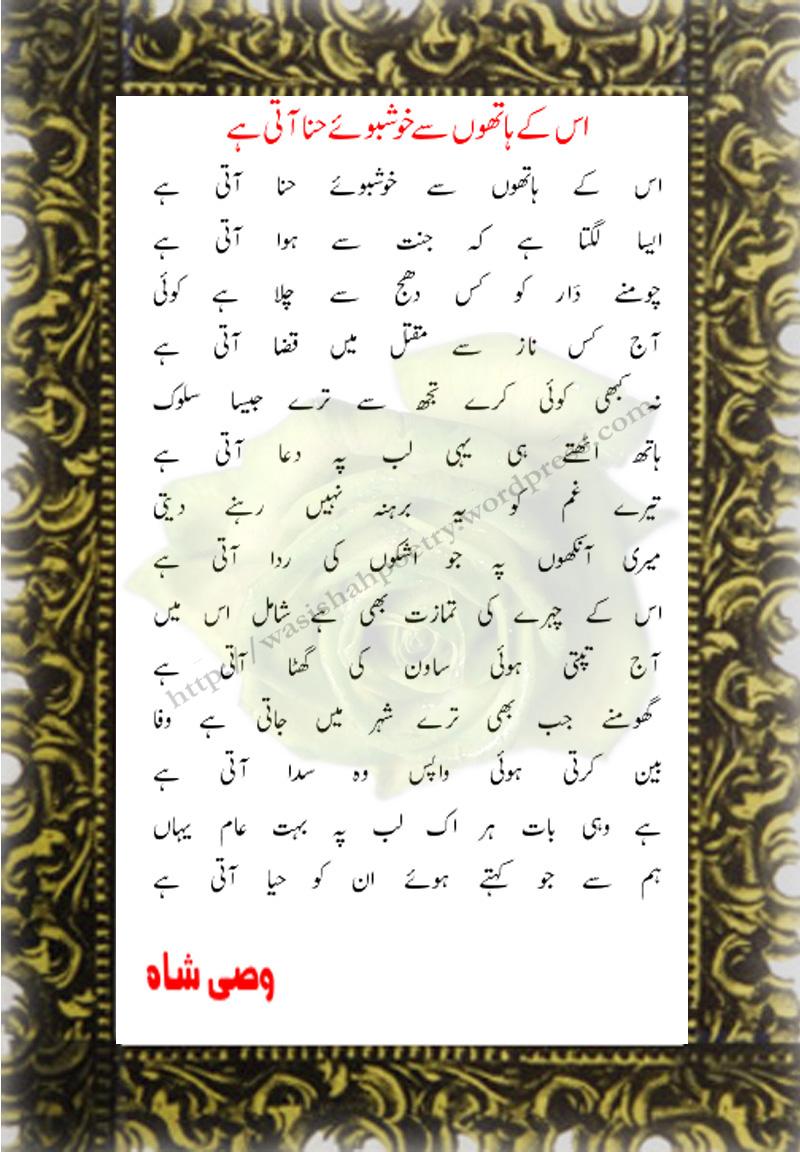 اس کے ہاتھوں سے خوشبوئے حنا آتی ہے
اس کے ہاتھوں سے خوشبوئے حنا آتی ہے
ایسا لگتا ہے کہ جنت سے ہوا آتی ہے
چومنے دَار کو کس دھج سے چلا ہے کوئی
آج کس ناز سے مقتل میں قضا آتی ہے
نہ کبھی کوئی کرے تجھ سے ترے جیسا سلوک
ہاتھ اٹھتے ہی یہی لب پہ دعا آتی ہے
تیرے غم کو یہ برہنہ نہیں رہنے دیتی
میری آنکھوں پہ جو اشکوں کی ردا آتی ہے
اس کے چہرے کی تمازت بھی ہے شامل اس میں
آج تپتی ہوئی ساون کی گھٹا آتی ہے
گھومنے جب بھی ترے شہر میں جاتی ہے وفا
بین کرتی ہوئی واپس وہ سدا آتی ہے
ہے وہی بات ہر اک لب پہ بہت عام یہاں
ہم سے جو کہتے ہوئے ان کو حیا آتی ہے
وصی شاہ
http://wasishahpoetry.wordpress.com